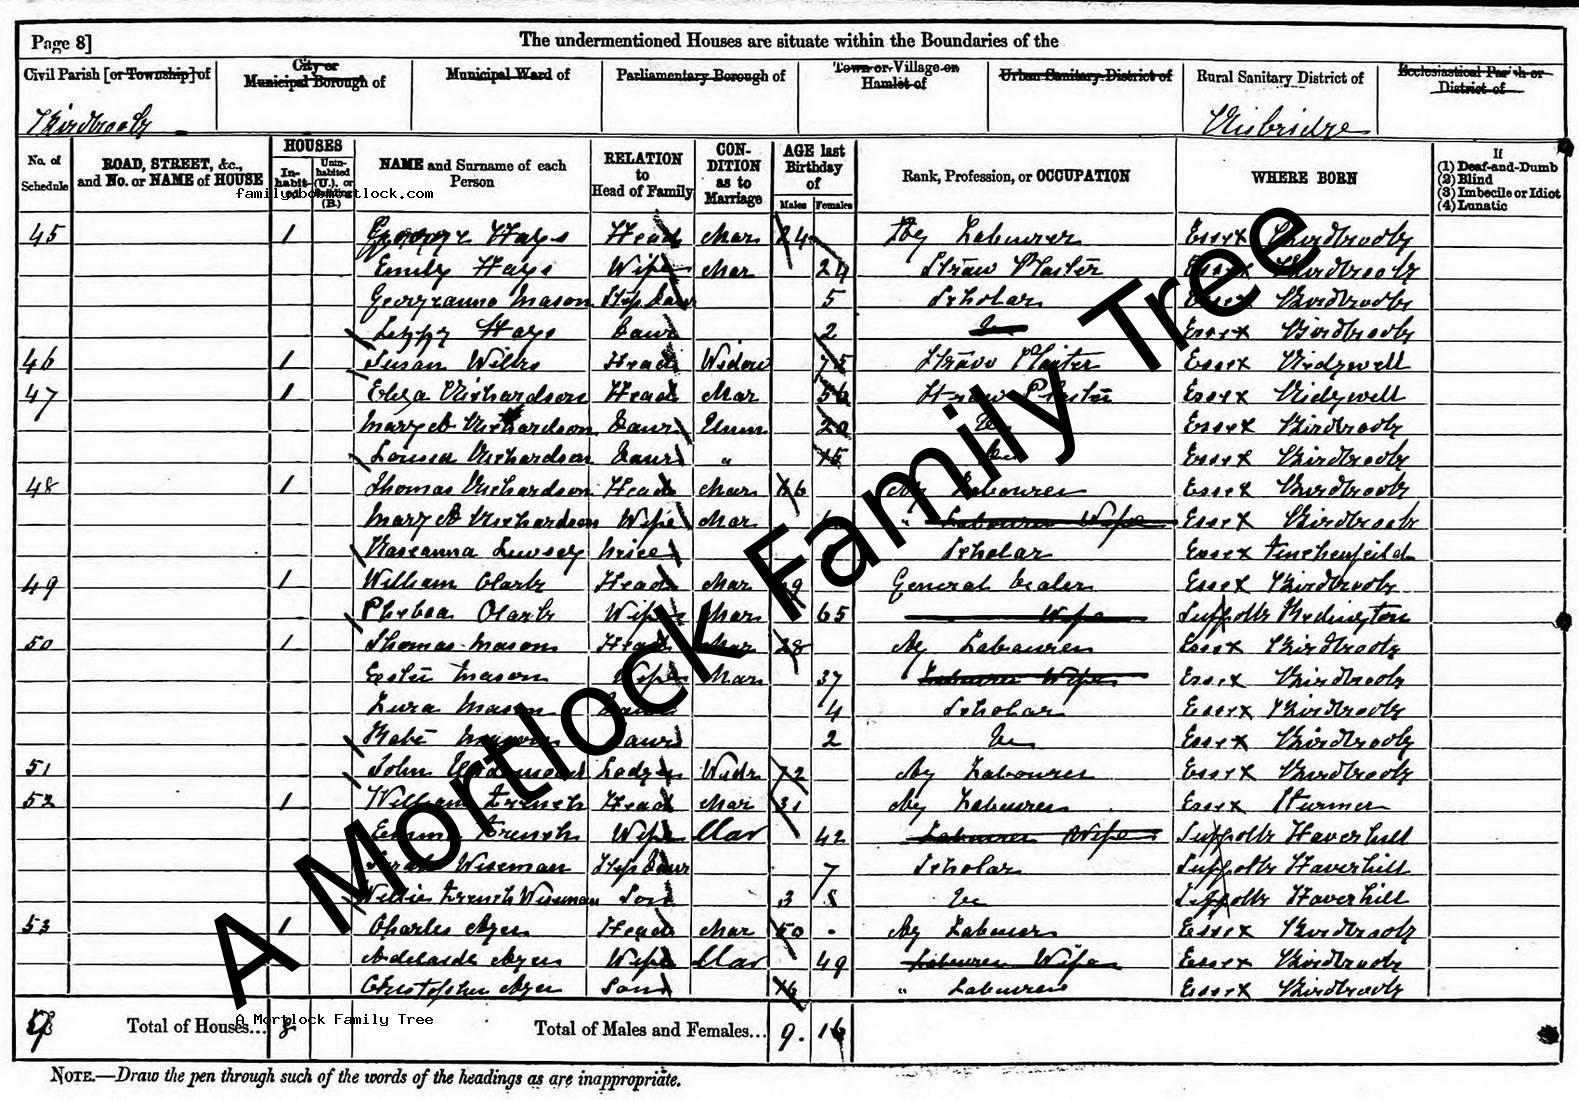 Page 8]
The undermentioned Houses are situate within the Boundaries of the
Civil Parish [or Township] of
City or Municipal Borough of
Municipal Ward of
Parliamentary Borough of
Town or Village or Hamlet of
Urban Sanitary District of
Rural Sanitary District of
Ecclesiastical Parish or District of
Birdbrook
No. of Schedule
ROAD, STREET, &c., and No. or NAME of HOUSE
HOUSES
In-habit-ed
Unin-habited (U.), or Building (B.)
NAME and Surname of each Person
RELATION to Head of Family
CON-DITION as to Marriage
AGE last Birthday of
Males Females
Rank, Profession, or OCCUPATION
WHERE BORN
If
(1) Deaf-and-Dumb
(2) Blind
(3) Imbecile or Idiot
(4) Lunatic
45 1 George Hays Head Mar 24 Ag Labourer Essex Birdbrook
Emily Hays Wife Mar 24 Straw Plaiter Essex Birdbrook
Georgeanna Mason Step Daur 5 Scholar Essex Birdbrook
Hays Daur 2 Do Essex Birdbrook
46 1 Susan Head Widow 75 Straw Plaiter Essex Ridgewell
47 1 Eliza Richardson Head Mar 56 Straw Plaiter Essex Ridgewell
Mary A Richardson Daur Unm 20 Do Essex Birdbrook
Louisa Richardson Daur " 15 Do Essex Birdbrook
48 1 Thomas Richardson Head Mar 66 Ag Labourer Essex Birdbrook
Mary A Richardson Wife Mar " Labourers Wife Essex Birdbrook
Roseanna Niece Scholar Essex
49 1 William Clark Head Mar General Dealer Essex Birdbrook
Phebea Clark Wife Mar 65 Wife Suffolk
50 1 Thomas Mason Head Mar 28 Ag Labourer Essex Birdbrook
Mason Wife Mar 37 Labourers Wife Essex Birdbrook
Mason Daur 4 Scholar Essex Birdbrook
Mason Daur 2 Do Essex Birdbrook
51 John Lodger Widr 72 Ag Labourer Essex Birdbrook
52 1 William French Head Mar 31 Ag Labourer Essex Sturmer
Emma French Wife Mar 42 Labourers Wife Suffolk Haverhill
Sarah Wiseman Step Daur 7 Scholar Suffolk Haverhill
Willie French Wiseman Son 3 Do Suffolk Haverhill
53 1 Charles Head Mar 50 Ag Labourer Essex Birdbrook
Adelaide Wife Mar 49 Labourers Wife Essex Birdbrook
Christopher Son 16 " Labourer Essex Birdbrook
Total of Houses...
Total of Males and Females... 9. 16
NOTE.—Draw the pen through such of the words of the headings as are inappropriate.
A Mortlock Family Tree
A Mortlock Family Tree